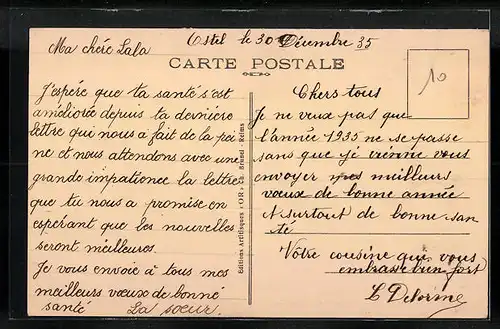 Ostel le 30 Décembre 35
CARTE POSTALE
10
Ma chère Lala
J'espère que ta santé s'est
améliorée depuis ta dernière
lettre qui nous a fait de la pei
ne et nous attendons avec une
grande impatience la lettre
que tu nous a promise en
espérant que les nouvelles
seront meilleures.
Je vous envoie à tous mes
meilleurs vœux de bonne
santé La sœur.
Editions Artistiques « OR » Ch. Brunel - Reims
Chers tous
Je ne veux pas que
l'année 1935 ne se passe
sans que je vienne vous
envoyer mes meilleurs
vœux de bonne année
et surtout de bonne san
té
Votre cousine qui vous
embrasse bien fort
L Delorme